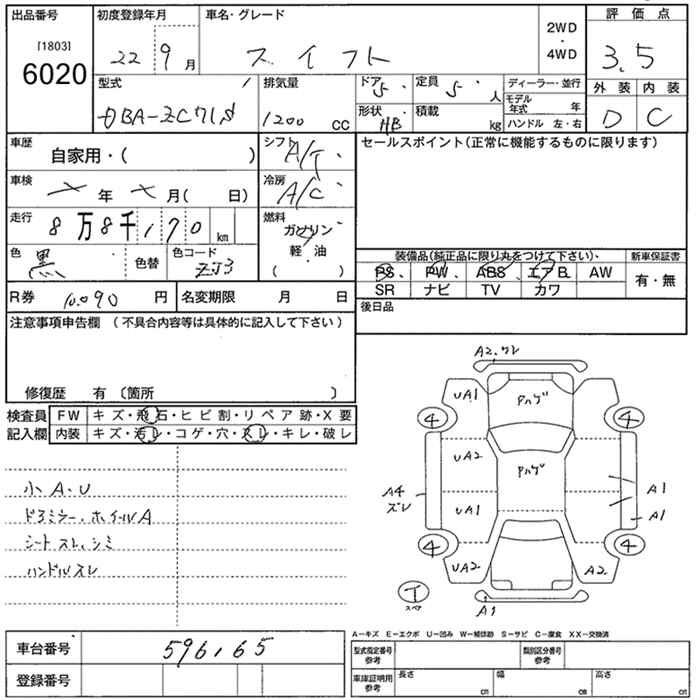 出品番号 [1803] 6020
初度登録年月 22 9 月
車名・グレード スイフト
2WD ・ 4WD
評価点 3.5
外装 D 内装 C
型式 DBA-ZC71S
排気量 1200 CC
ドア 5
定員 5 人
形状 HB
積載 kg
ディーラー・並行
モデル年式 年
ハンドル 左・右
車歴 自家用・( )
シフト A/T
セールスポイント(正常に機能するものに限ります)
車検 年 月( 日)
冷房 A/C
走行 8万8千170 km
燃料 ガソリン 軽油 ( )
色 黒 色替 色コード ZJ3
装備品(純正品に限り丸をつけて下さい)、
PS、PW、ABS エアB AW
SR ナビ TV カワ
新車保証書 有・無
R券 10.090 円 名変期限 月 日
後日品
注意事項申告欄 (不具合内容等は具体的に記入して下さい)
修復歴 有 〔箇所 〕
検査員記入欄
FW キズ・飛石・ヒビ割・リペア跡・X要
内装 キズ・汚レ・コゲ・穴・スレ・キレ・破レ
小A・U
ドアミラー・ホイルA
シートスレ、シミ
ハンドルスレ
A2.ワレ
UA1 Pハゲ
4 4
UA2 Pハゲ
A4 ズレ UA1 A1
A1
4 4
UA2 A2
T スペア A1
A-キズ E-エクボ U-凹み W-補修跡 S-サビ C-腐食 XX-交換済
車台番号 596165
登録番号
型式指定番号 参考
類別区分番号 参考
車庫証明用 参考 長さ cm 幅 cm 高さ cm